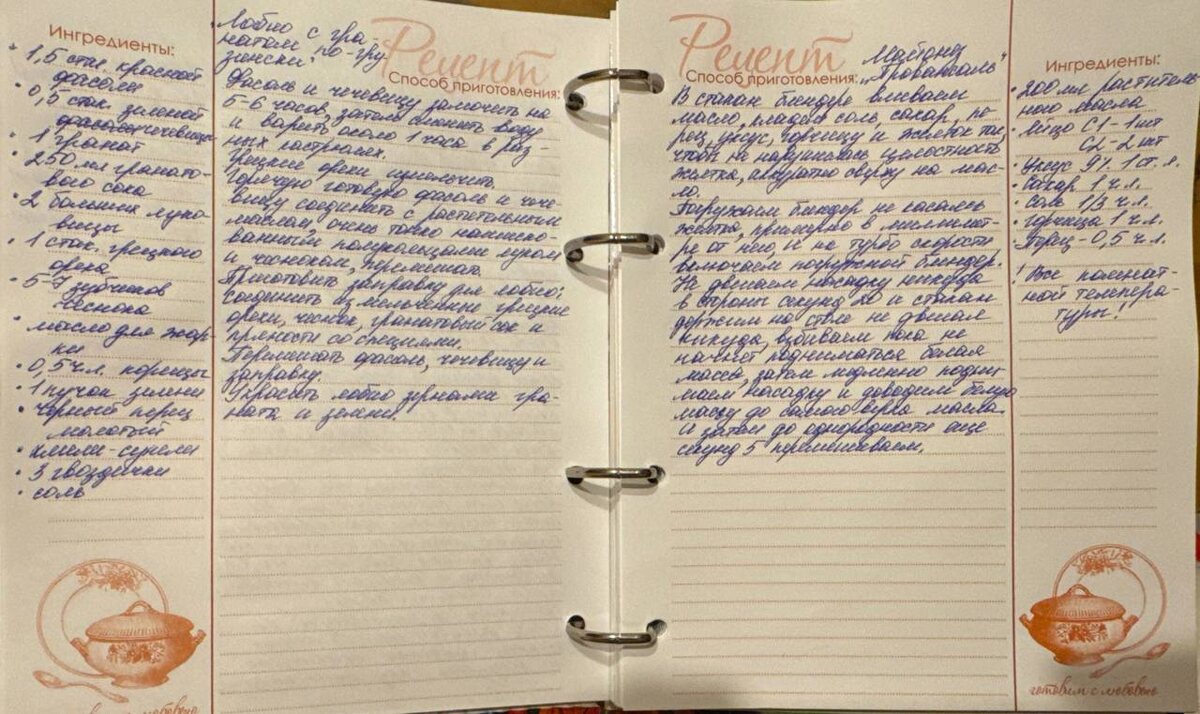 Ингредиенты:
• 1,5 стак. красной
фасоли
• 0,5 стак. зеленой
фасоли чечевицы
• 1 гранат
• 250 мл гранато-
вого сока
• 2 больших луко-
вицы
• 1 стак. грецкого
ореха
• 5-7 зубчиков
чеснока
• масло для жар-
ки
• 0,5 ч.л. корицы
• 1 пучок зелени
• черный перец
молотый
• хмели-сунели
• 3 гвоздички
• соль
Лобио с гра-
натом по-гру-
зински
Рецепт
Способ приготовления:
Фасоль и чечевицу замочить на
5-6 часов, затем сменить воду
и варить около 1 часа в раз-
ных кастрюлях.
Грецкие орехи измельчить.
Горячую готовую фасоль и чече-
вицу соединить с растительным
маслом, очень тонко нашинко-
ванным полукольцами луком
и чесноком, перемешать.
Приготовить заправку для лобио:
соединить измельченные грецкие
орехи, чеснок, гранатовый сок и
пряности со специями.
Перемешать фасоль, чечевицу и
заправку.
Украсить лобио зернами гра-
ната и зелени.
Рецепт
Способ приготовления:
Майонез
"Провансаль"
В стакан блендера вливаем
масло, кладём соль, сахар, пе-
рец, уксус, горчицу и желток так,
чтобы не нарушилась целостность
желтка, аккуратно сверху на мас-
ло.
Погружаем блендер не касаясь
желтка, примерно в миллимет-
ре от него, и на турбо скорости
включаем погружной блендер.
Не двигаем насадку никуда
в стороны секунд 20 и стакан
держим на столе не двигая
никуда, взбиваем пока не
начнет подниматься белая
масса, затем медленно подни-
маем насадку и доводим белую
массу до самого верха масла.
и затем до однородности еще
секунд 5 перемешиваем.
Ингредиенты:
• 200 мл раститель
ного масла
• Яйцо С1-1 шт
С2-2 шт
• Уксус 9% 1 ст.л.
• Сахар 1 ч.л.
• Соль 1/3 ч.л.
• горчица 1 ч.л.
• Перец-0,5 ч.л.
! Все комнат-
ной темпера-
туры!
с любовью
готовим с любовью